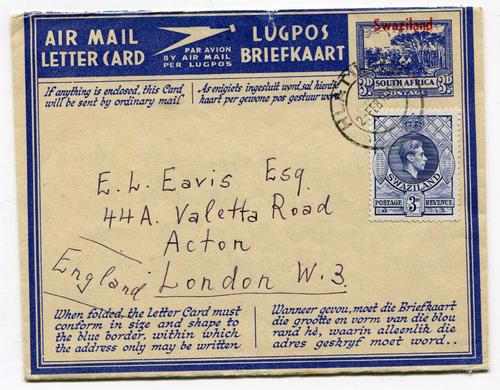 AIR MAIL
LETTER CARD
PAR AVION
BY AIR MAIL
PER LUGPOS
LUGPOS
BRIEFKAART
Swaziland
3D SOUTH AFRICA 3D
POSTAGE
If anything is enclosed, this Card
will be sent by ordinary mail
As enigiets ingesluit word, sal hierdie
kaart per gewone pos gestuur
SWAZILAND
POSTAGE 3D REVENUE
E. L. Eavis Esq.
44A. Valetta Road
Acton
England London W.3
When folded, the Letter Card must
conform in size and shape to
the blue border, within which
the address only may be written
Wanneer gevou, moet die Briefkaart
die grootte en vorm van die blou
rand hê, waarin alleenlik die
adres geskryf moet word..